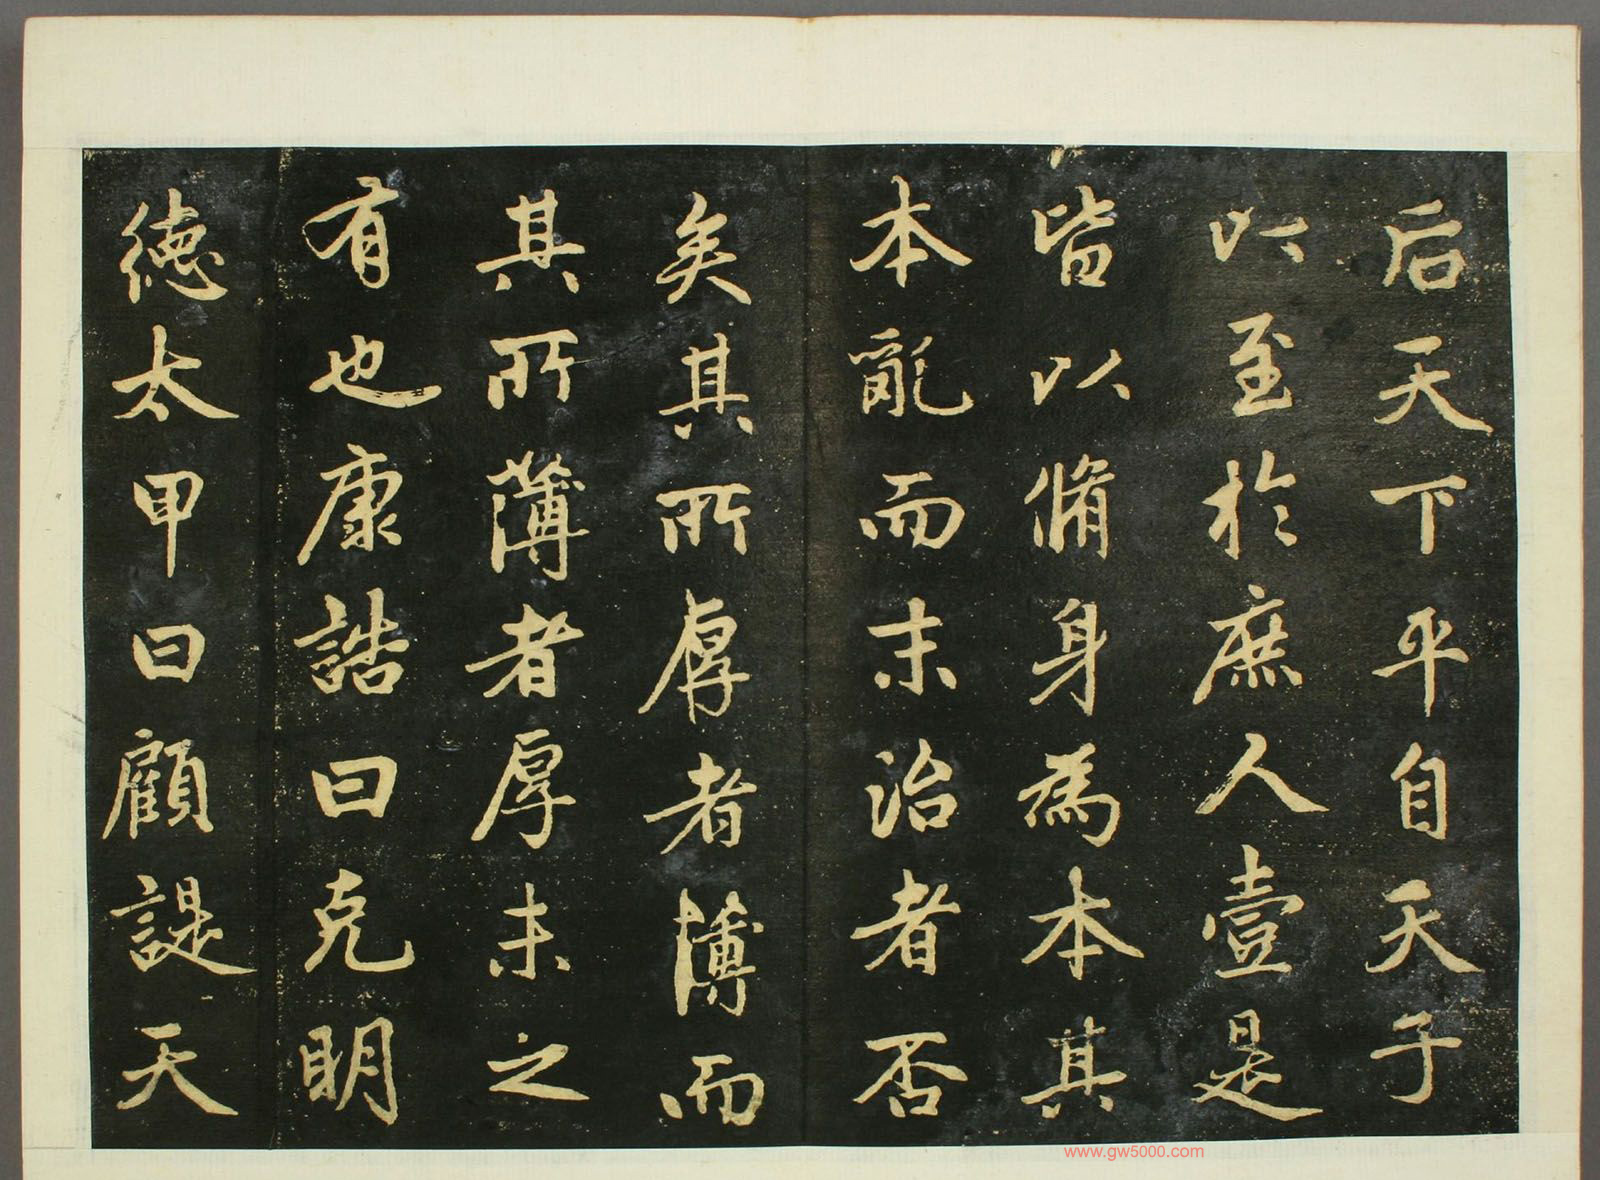 后天下平自天子
以至於庶人壹是
皆以脩身為本其
本亂而末治者否
矣其所厚者薄而
其所薄者厚未之
有也康誥曰克明
德太甲曰顧諟天
www.gw5000.com